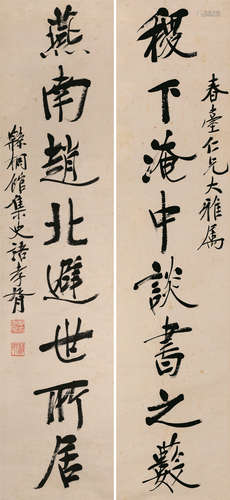 春臺仁兄大雅屬
稷下淹中談書之藪
燕南趙北避世所居
緐桐館集史語孝胥